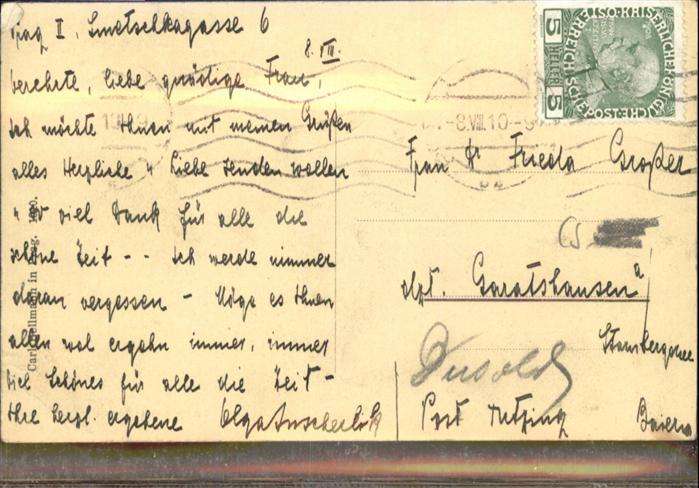 Prag I, Smetschkagasse 6
8. VIII.
verehrte, liebe gnädige Frau,
ich möchte Ihnen mit meinen Grüßen
alles Herzliche u Liebe senden wollen
u so viel Dank für alle die
schöne Zeit - - ich werde nimmer
daran vergessen - Möge es Ihnen
allen wol ergehn immer, immer
viel Schönes für alle die Zeit -
Ihre herzl. ergebene Olga
Frau Dr Frieda Großer
Garatshausen
a/
Starnbergersee
Post Tutzing Baiern
5 HELLER 5
KAISERLICHE KÖNIGLICHE
ÖSTERREICHISCHE POST
-8.VIII.10-9
Carl Bellmann in Prag.